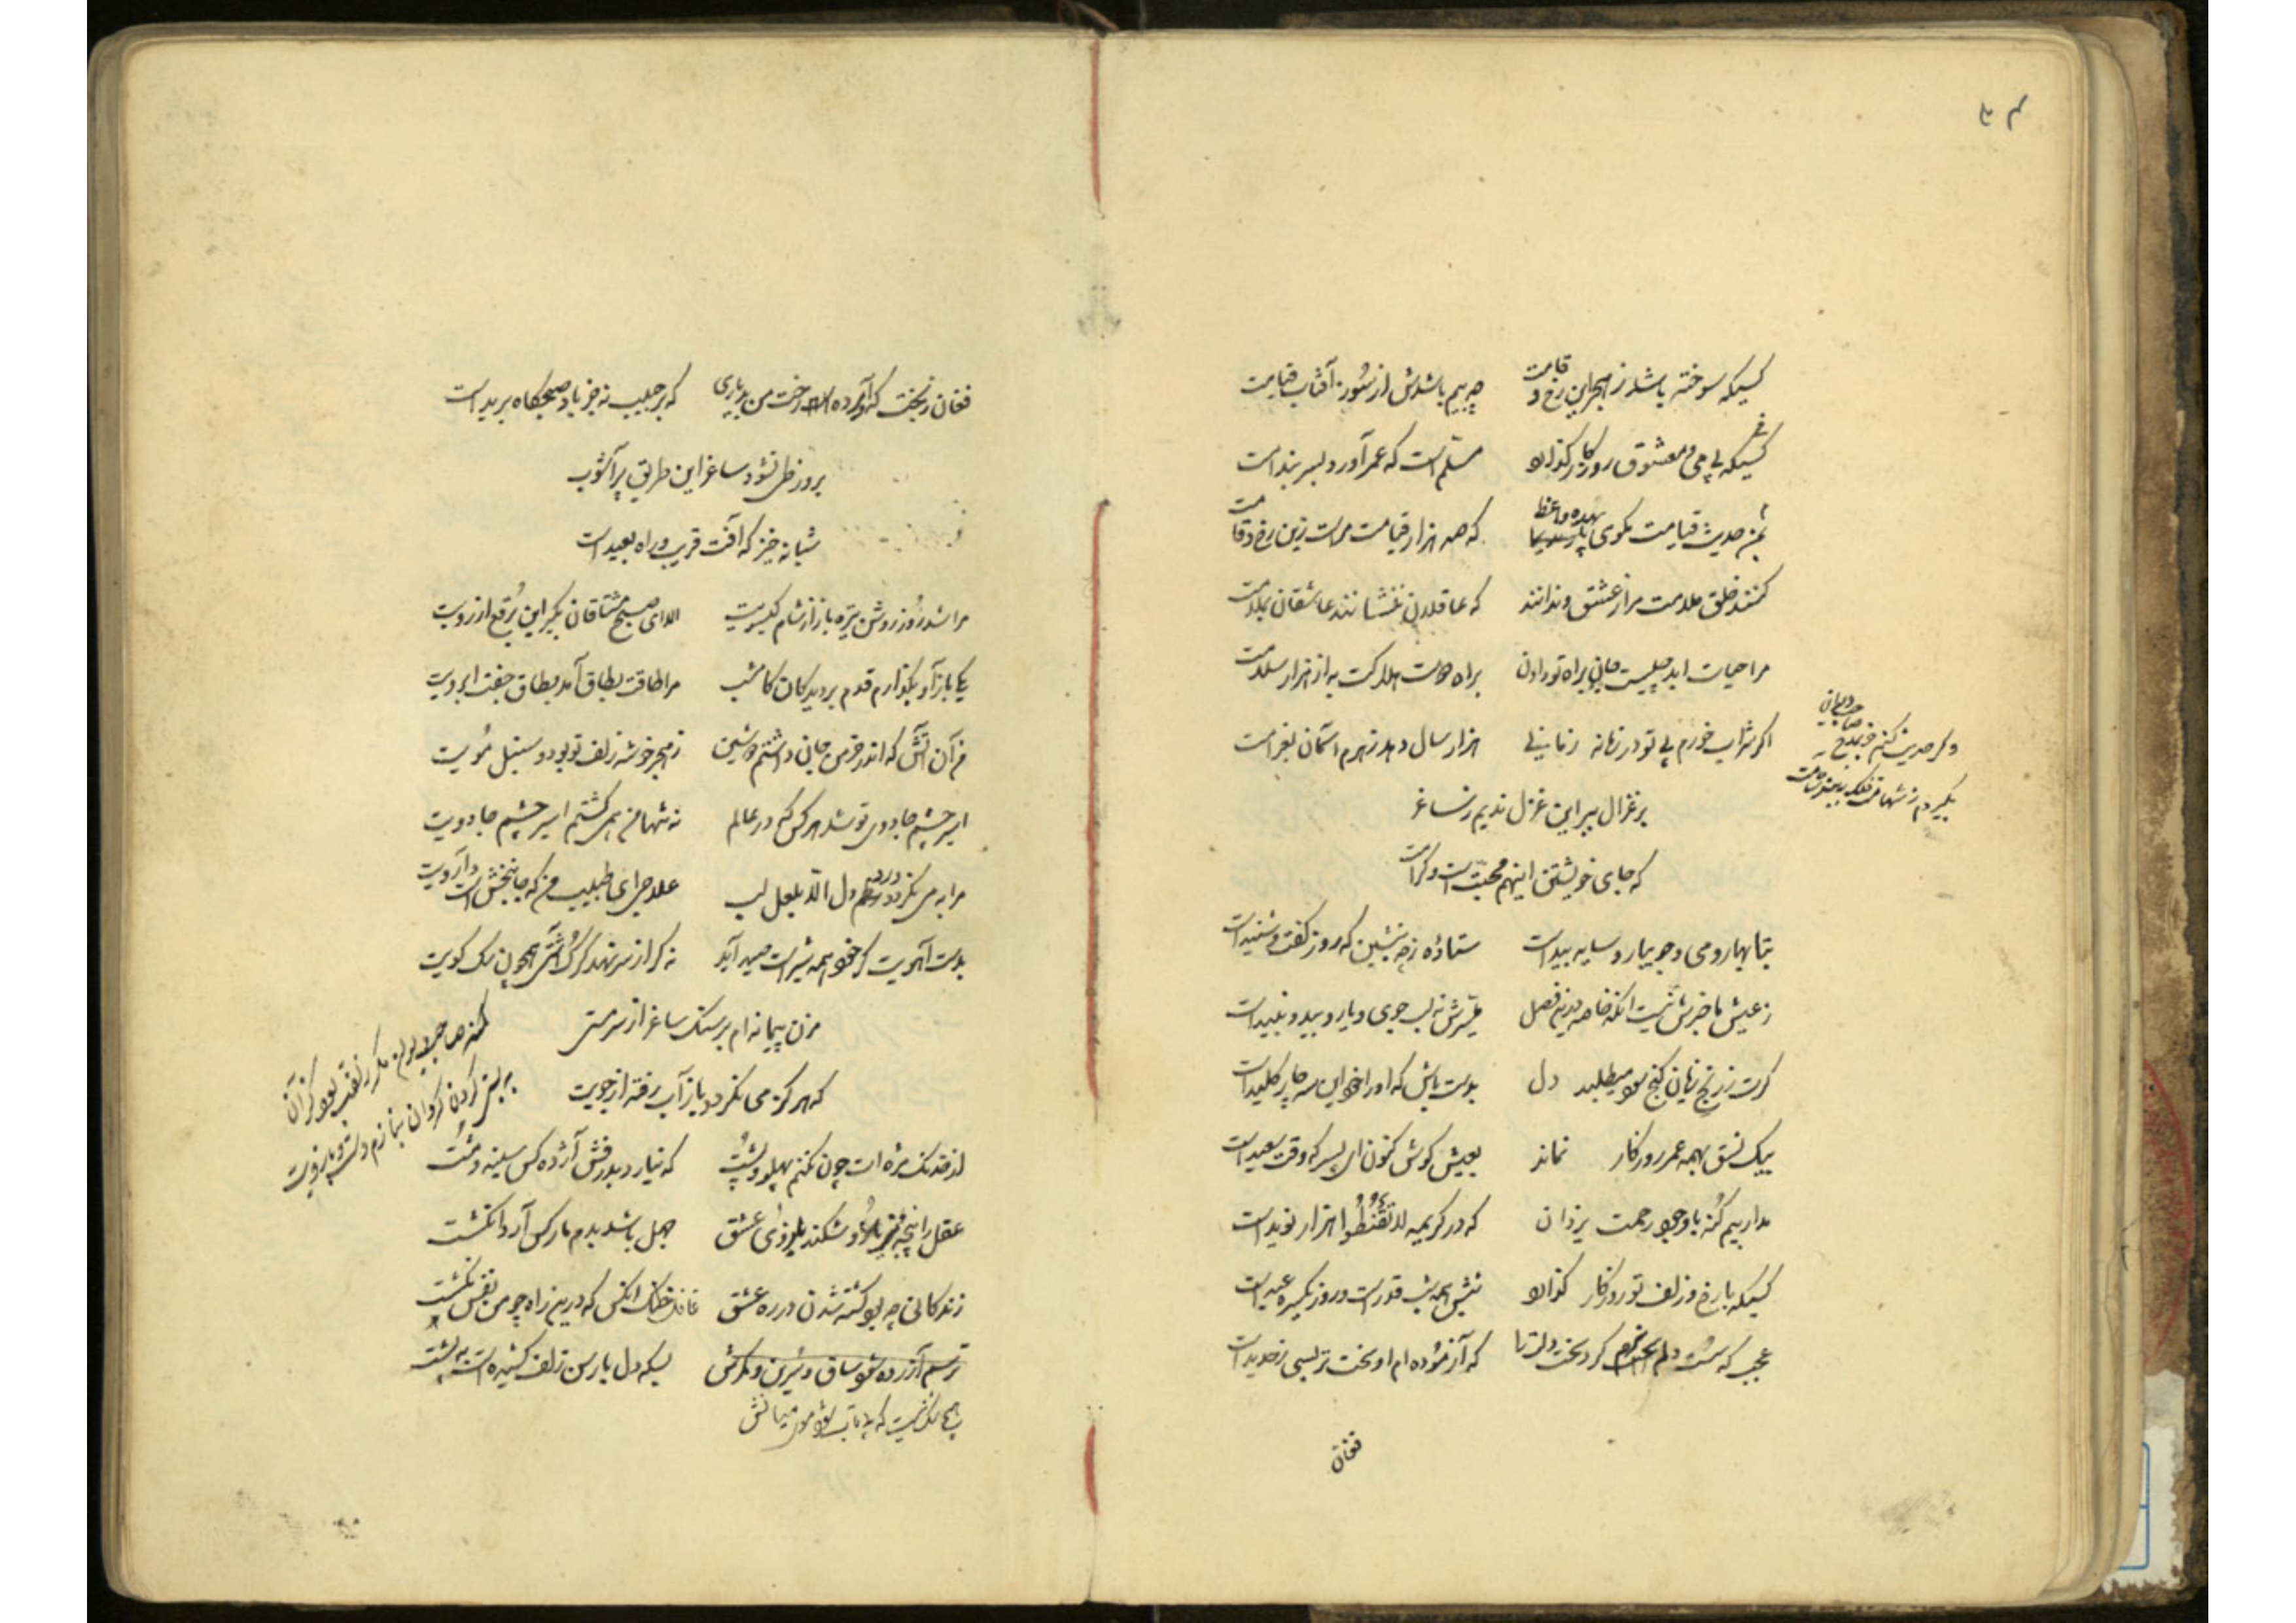 کسیکه سوخته باشد ز هجر این رخ و قامت چه بیم باشدش از سوز آفتاب قیامت
کسیکه بی می و معشوق روزگار گذارد مسلم است که عمر آورد بسر بندامت
بمن حدیث قیامت مگوی بهده واعظ که صد هزار قیامت مراست زین رخ و قامت
کنند خلق ملامت مرا ز عشق و ندانند که عاقلان نشناسند عاشقان بملامت
مرا حیات ابد چیست جان براه تو دادن براه دوست هلاکت به از هزار سلامت
اگر شراب خورم بی تو در زمانه زمانی هزار سال دهد زهرم آسمان بغرامت
بر غزال ببر این غزل ندیم ز ساغر
که جای خویشتن اینهم محبت است و کرامت
بتا بهار و می و جویبار و سایه بید است ستاده زچه بنشین که روز گفت و شنید است
ز عیش با خبرش نیست آنکه خاصه درین فصل بسرش نه لب جوی و یار و بید و نبید است
گرت ز رنج نهان گنج میطلبد دل بدست باش که او را این سه چار کلید است
بیک نسق بهمه عمر روزگار نماند بعیش کوش کنون ای پسر که وقت سعید است
مدار بیم گنه با وجود رحمت یزدان که در کریمه لا تقنطوا هزار نوید است
کسیکه با رخ و زلف تو روزگار گذارد شبش همه شب قدر است و روز یکسره عید است
عجب که سست دلم کرد سخت دلت را که آزموده ام او سخت تر بسی ز حدید است
فغان
فغان ز بخت که آورده رخت من بدیاری که بر حبیب نه جز باد صبحگاه برید است
بروز طی نشود ساغر این طریق پر آشوب
شبانه خیز که آفت قریب و راه بعید است
مرا شد روز روشن تیره باز از شام گیسویت الا ای صبح مشتاقان بگیر این برقع از رویت
یکی باز آ و بگذارم قدم بر دیدگان کامشب مرا طاقت بطاق آمد بطاق جفت ابرویت
من آن آتش که اندر خرمن جان داشتم دوشین ز هجر خوشه زلف تو بود و سنبل مویت
اسیر چشم جادوی تو شد هر کس که در عالم نه تنها من همی گشتم اسیر چشم جادویت
مرا به می نگردد درد دل الا بلعل لب علاجی ای طبیب من که جانبخش است دارویت
بدست آهویت گر خود همه شیر است صید آید نه گر از سر نهد گرگ آشتی همچون سگ کویت
مزن پیمانه ام بر سنگ ساغر از سر مستی
که هرگز می نگردد باز آب رفته از جویت
از خدنگ مژه ات چون نکنم پهلو و پشت که نیارد بدرفش آژده کس سینه و مشت
عقل را پنجه شکند بازوی عشق جهل باشد بدم مار کس آرد انگشت
زندگانی چه بود کشته شدن در ره عشق غافل آنکس که درین راه چو من نفس نکشت
ترسم آزرده شود ساق و سرین و کمرش بسکه دل بار سن زلف کشیده است به پشت